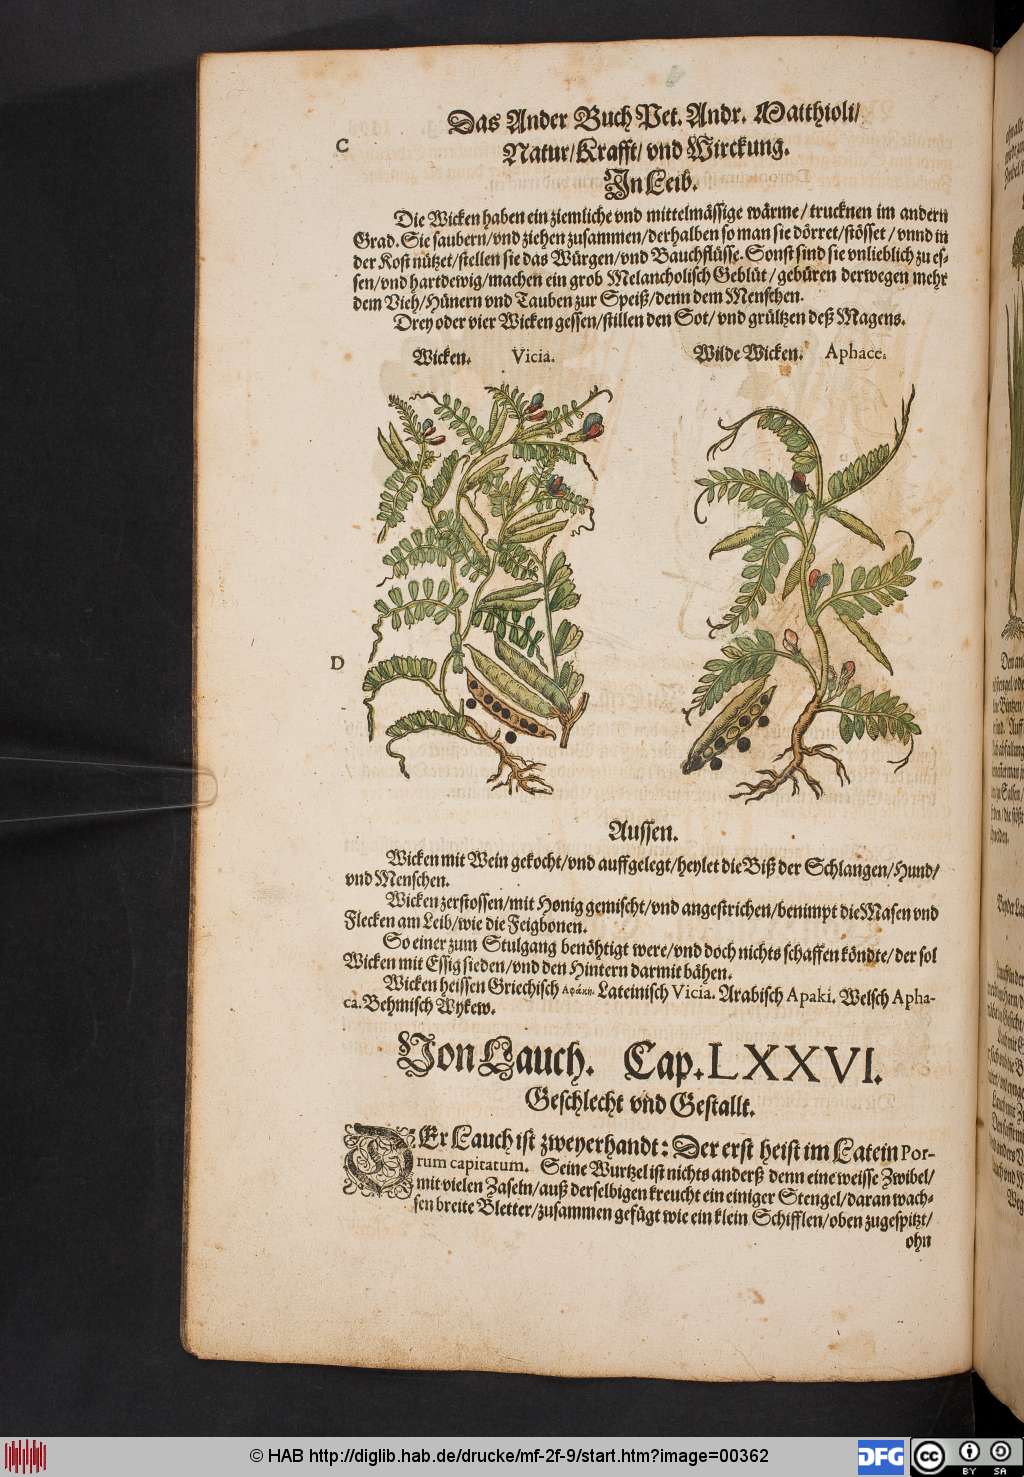 Das Ander Buch Pet. Andr. Matthioli/
C
Natur/Krafft/vnd Wirckung.
In Leib.
Die Wicken haben ein ziemliche vnd mittelmässige wärme/trucknen im andern
Grad. Sie saubern/vnd ziehen zusammen/derhalben so man sie dörret/stösset/vnnd in
der Kost nützet/stellen sie das Würgen/vnd Bauchflüsse. Sonst sind sie vnlieblich zu es-
sen/vnd hartdewig/machen ein grob Melancholisch Geblüt/gebüren derwegen mehr
dem Vieh/Hünern vnd Tauben zur Speiß/denn dem Menschen.
Drey oder vier Wicken gessen/stillen den Sot/vnd grültzen deß Magens.
Wicken. Vicia. Wilde Wicken. Aphace.
D
Aussen.
Wicken mit Wein gekocht/vnd auffgelegt/heylet die Biß der Schlangen/Hund/
vnd Menschen.
Wicken zerstossen/mit Honig gemischt/vnd angestrichen/benimpt die Masen vnd
Flecken am Leib/wie die Feigbonen.
So einer zum Stulgang benöhtigt were/vnd doch nichts schaffen köndte/der sol
Wicken mit Essig sieden/vnd den Hintern darmit bähen.
Wicken heissen Griechisch Lateinisch Vicia. Arabisch Apaki. Welsch Apha-
ca. Behmisch Wykew.
Von Lauch. Cap. LXXVI.
Geschlecht vnd Gestallt.
DEr Lauch ist zweyerhandt: Der erst heist im Latein Por-
rum capitatum. Seine Wurtzel ist nichts anderß denn eine weisse Zwibel/
mit vielen Zaseln/auß derselbigen kreucht ein einiger Stengel/daran wach-
sen breite Bletter/zusammen gefügt wie ein klein Schifflen/oben zugespitzt/
ohn
© HAB http://diglib.hab.de/drucke/mf-2f-9/start.htm?image=00362
DFG
cc
BY SA